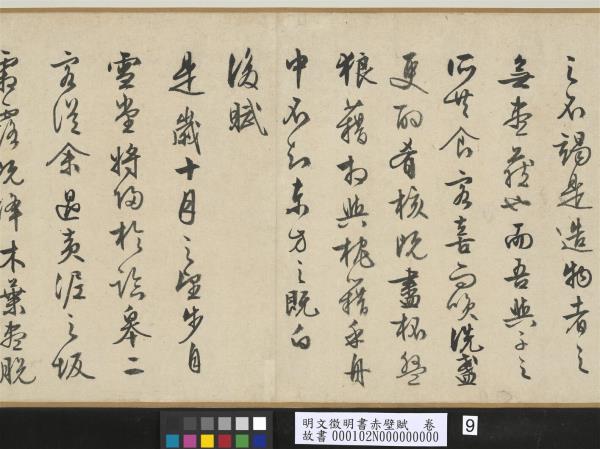 之不竭是造物者之
無盡藏也而吾與子之
所共食客喜而笑洗盞
更酌肴核既盡杯盤
狼藉相與枕藉乎舟
中不知東方之既白
後賦
是歲十月之望步自
雪堂將歸於臨皋二
客從余過黃泥之坂
霜露既降木葉盡脫
明文徵明書赤壁賦 卷
故書 000102N000000000
9